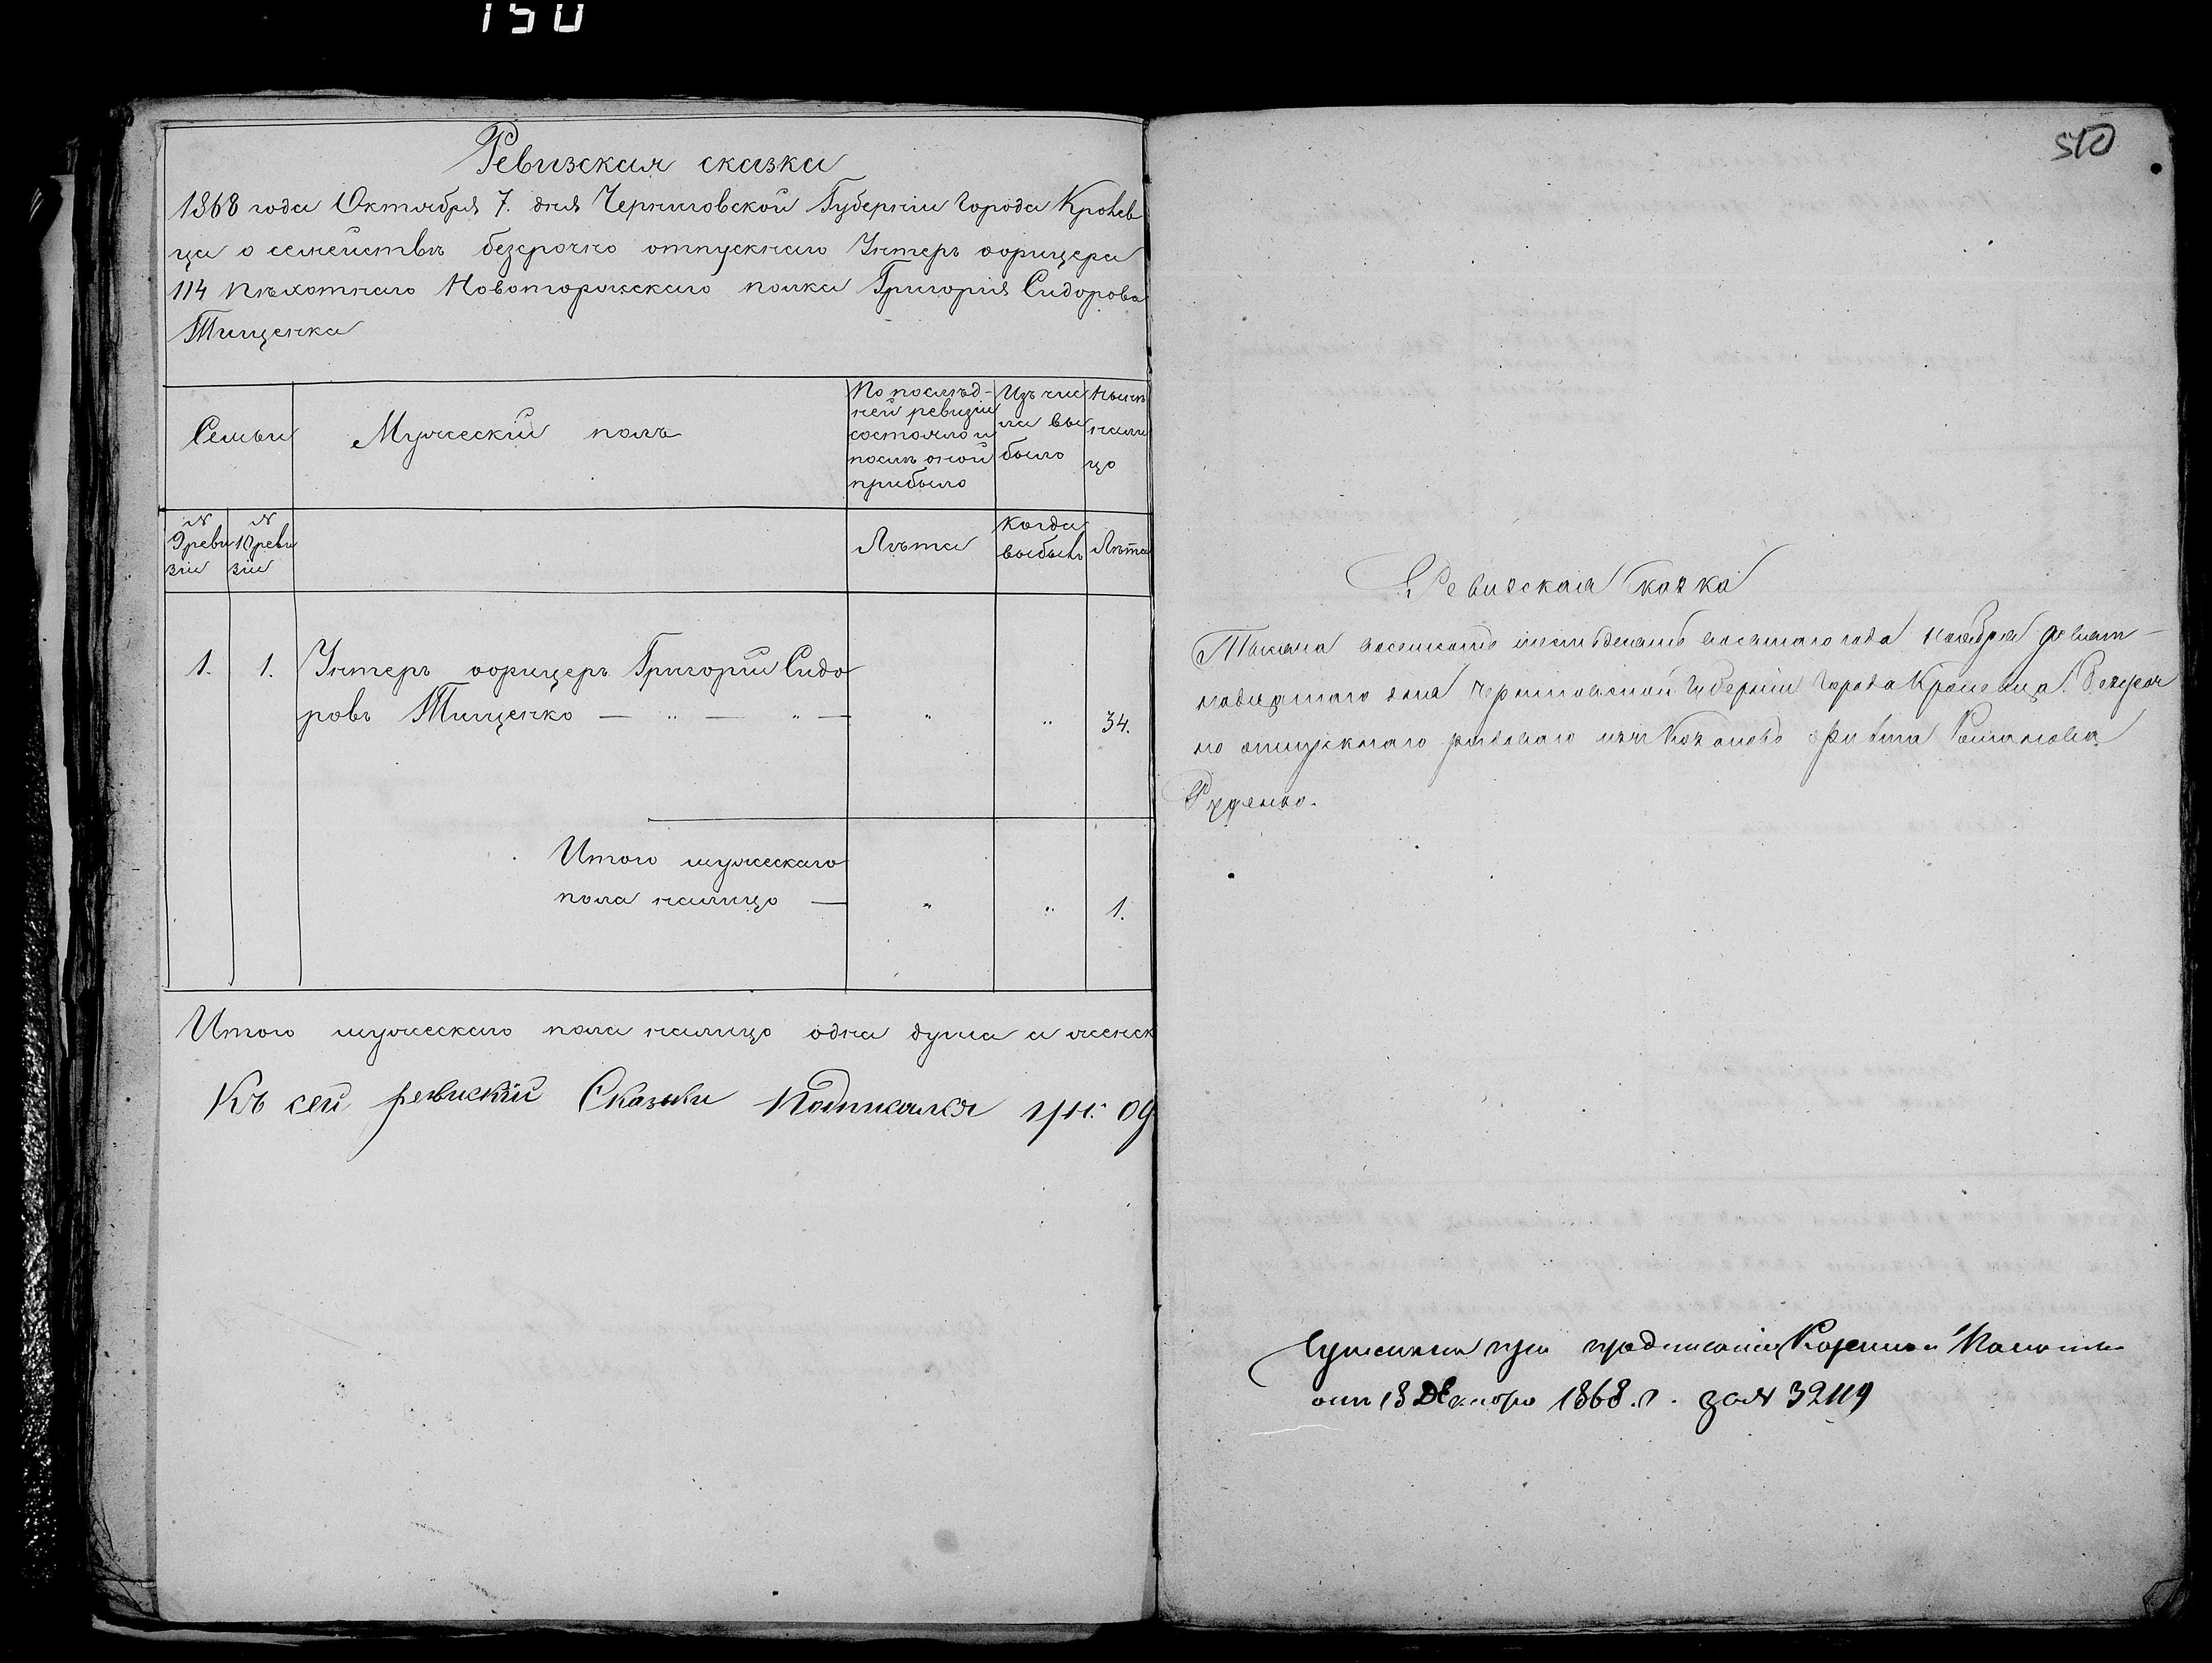 150
Ревизская сказка
1868 года Октября 7. дня Черниговской Губерніи города Кролев
ца о семействѣ безсрочно отпускнаго Унтеръ офицера
114 пѣхотнаго Новоторжскаго полка Григорія Сидорова
Тищенка
Семьи
Мужескій полъ
По послѣд-
ней ревизіи
состояло и
послѣ оной
прибыло
Изъ чис
ла вы
было
Нынѣ
нали
цо
№ 9 реви
зіи
№ 10 реви
зіи
Лѣта
Когда
выбылъ
Лѣта
1. 1. Унтеръ офицеръ Григорій Сидо
ровъ Тищенко — " — " — " " 34.
Итого мужескаго
пола налицо — " " 1.
Итого мужескаго пола налицо одна душа а женск
Къ сей ревиской Сказки Подписался
510
Ревизская Скаска
Тысяча восемсотъ шестьдесятъ восьмаго года Ноября девят-
надцятаго дня Черниговской Губерніи Города Кролевца. Безсроч
но отпускнаго рядоваго Романова
Руденко.
при предписаніи Казенной Палаты
отъ 13 Декабря 1868. г. за № 32119